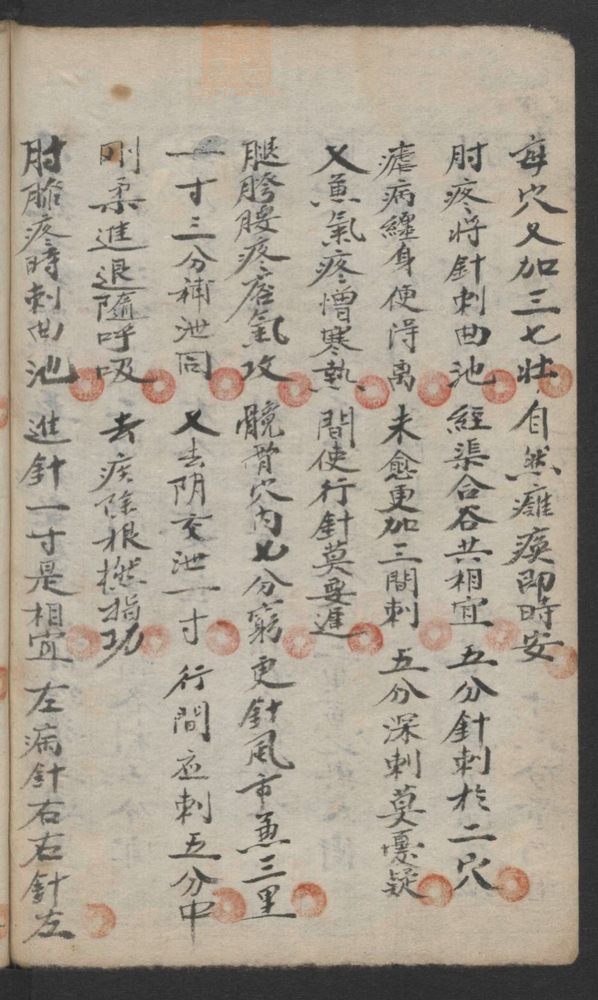 每穴又加三七壯 自然癱瘓即時安
肘疼將針刺曲池 經渠合谷共相宜 五分針刺於二穴
瘧病纏身便得离 未愈更加三間刺 五分深刺莫憂疑
又兼氣疼憎寒熱 間使行針莫要遲
腿胯腰疼痞氣攻 髖骨穴內七分窮 更針風市兼三里
一寸三分補泄同 又去阴交泄一寸 行間应刺五分中
刚柔進退隨呼吸 去疾除根撚指功
肘膝疼時刺曲池 進針一寸是相宜 左病針右右針左